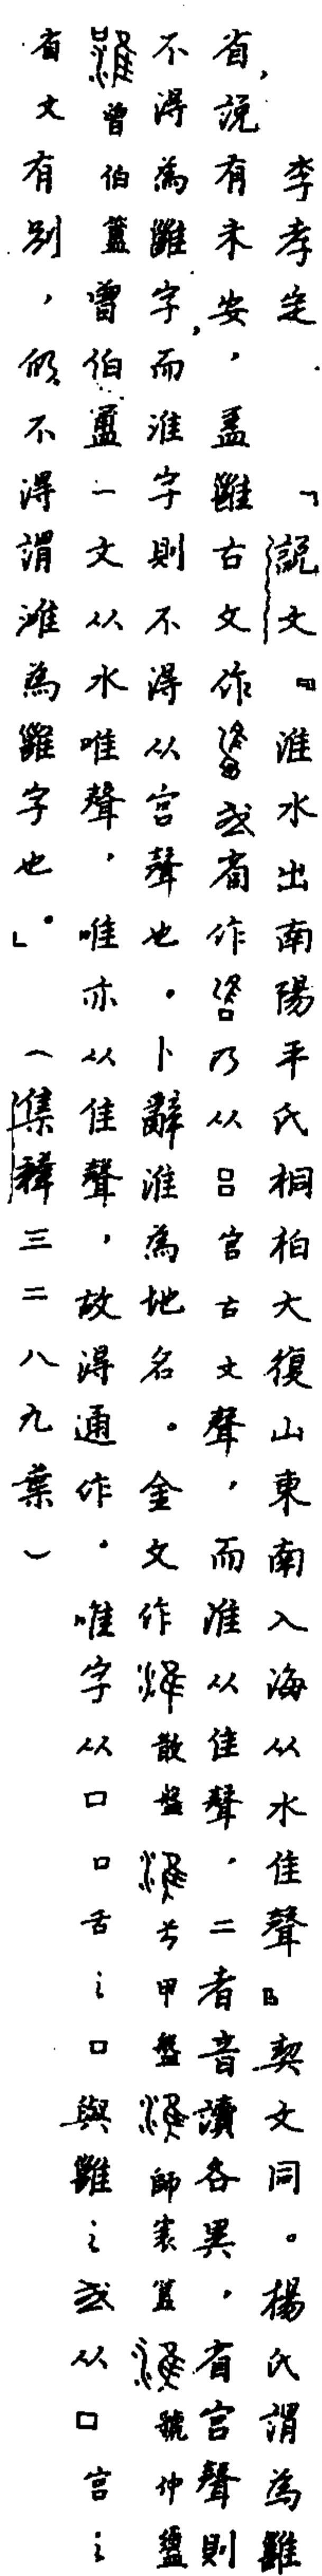 李孝定　「說文『淮水出南陽平氏桐柏大復山東南入海从水隹聲』契文同。楊氏謂為雝
省，說有未安，蓋雝古文作或省作乃从吕宮古文聲，而淮从隹聲，二者音讀各異，省宮聲則
不得為雝字，而淮字則不得从宮聲也。卜辭淮為地名。金文作散盤兮甲盤師㝨簋虢仲盨
曾伯簠曾伯簠一文从水唯聲，唯亦从隹聲，故得通作。唯字从口口舌之口與雝之或从口宮之
省文有別，似不得謂淮為雝字也。」（集釋三二八九葉）